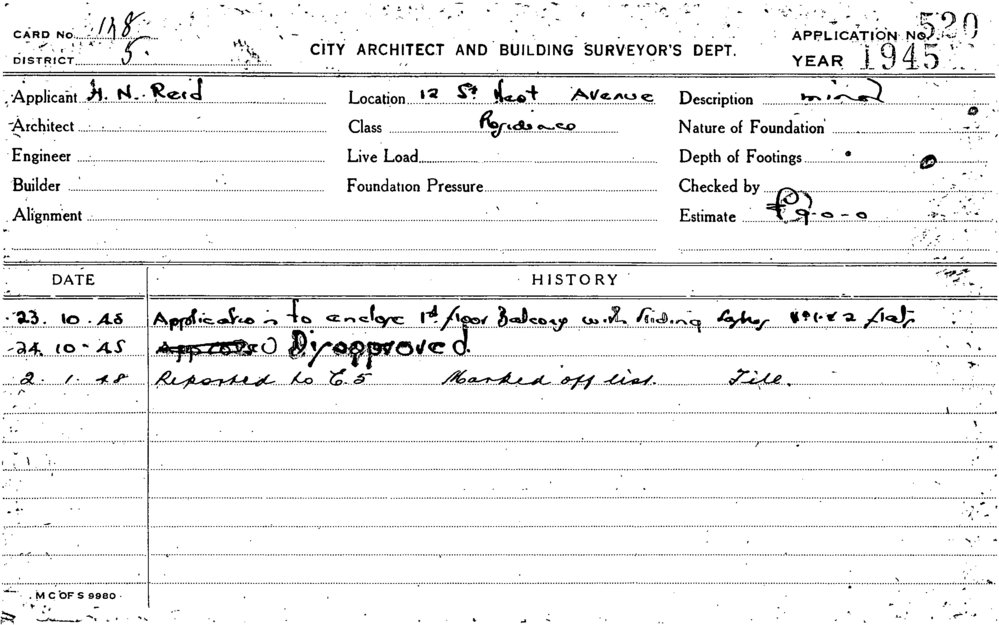 CARD No. 148
DISTRICT 5.
CITY ARCHITECT AND BUILDING SURVEYOR'S DEPT.
APPLICATION No. 520
YEAR 1945
Applicant H. N. Reid Location 12 St Neot Avenue Description minor
Architect Class Residence Nature of Foundation
Engineer Live Load Depth of Footings
Builder Foundation Pressure Checked by
Alignment Estimate £9-0-0
DATE HISTORY
23. 10. 45 Application to enclose 1st floor Balcony with sliding Sashes 1 & 2 flats
24. 10-45 Approved Disapproved.
2. 1. 48 Reported to E.5 Marked off list. File.
M C OF S 9980